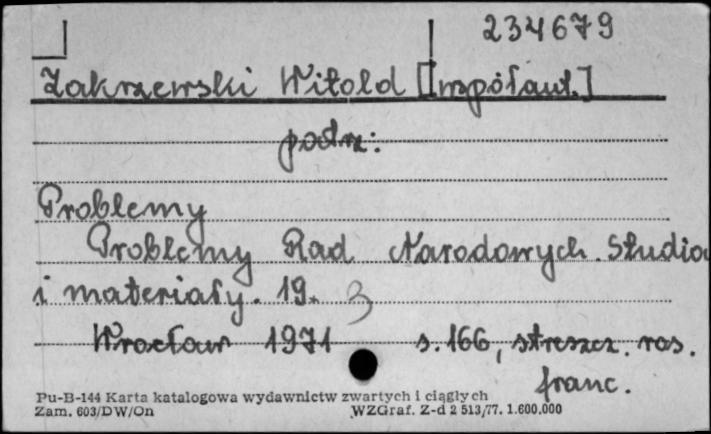 234679
Zakrzewski Witold [współaut.]
podrz:
Problemy
Problemy Rad Narodowych. Studia
i materiały. 19. 3
Wrocław 1971 s. 166, streszcz. ros.
franc.
Pu-B-144 Karta katalogowa wydawnictw zwartych i ciągłych
Zam. 603/DW/On WZGraf. Z-d 2 513/77. 1.600.000